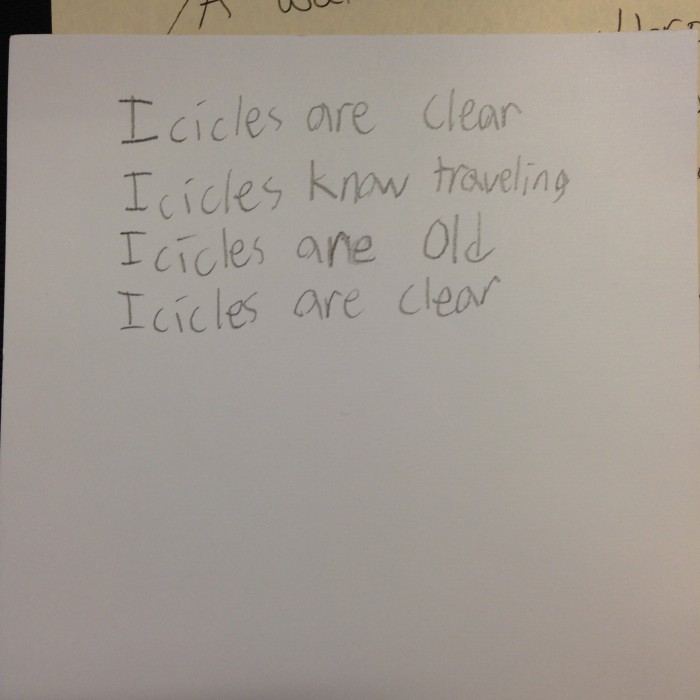 Icicles are clear
Icicles know traveling
Icicles are Old
Icicles are clear